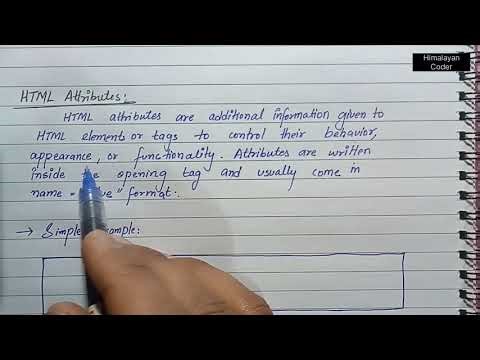 Himalayan
Coder
HTML Attributes:
HTML attributes are additional information given to
HTML elements or tags to control their behavior,
appearance, or functionality. Attributes are written
inside opening tag and usually come in
name = " " format.
→ Simple :